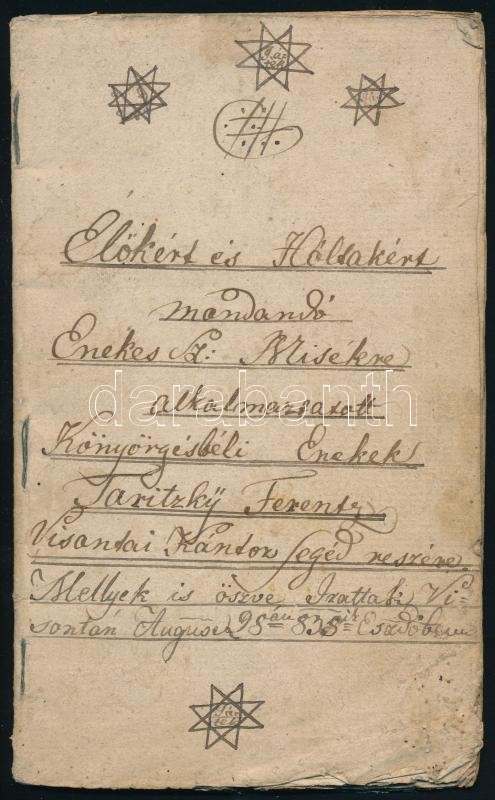 Előkért és Hóltakért
mondandó
Enekes Sz: Misékre
alkalmazsatott
Könyörgésbéli Enekek
Taritzkÿ Ferentz
Visontai Kántor segéd reszére
Mellyek is öszve Irattak Vi-
sontán August 28án 838ik Esztdőben
darabanth